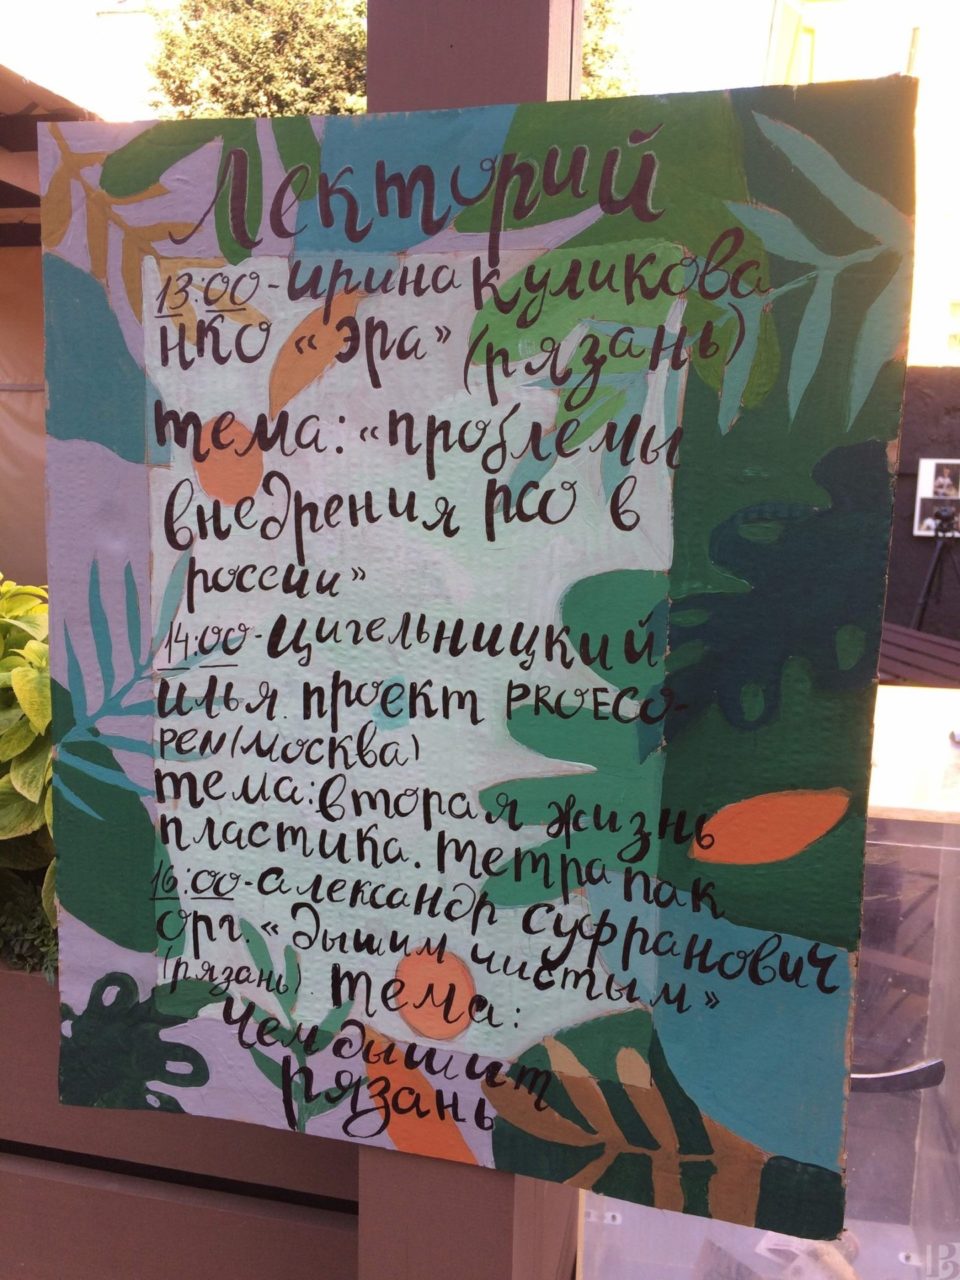 Лекторий
13:00-Ирина Куликова
НКО «Эра» (Рязань)
тема: «проблемы
внедрения РСО в
россии»
14:00-Цигельницкий
Илья. проект PROECO-
PEN(Москва)
тема: вторая жизнь
пластика. тетрапак
16:00-Александр Суфранович
орг. «дышим чистым»
(Рязань). тема:
Чем дышит
Рязань